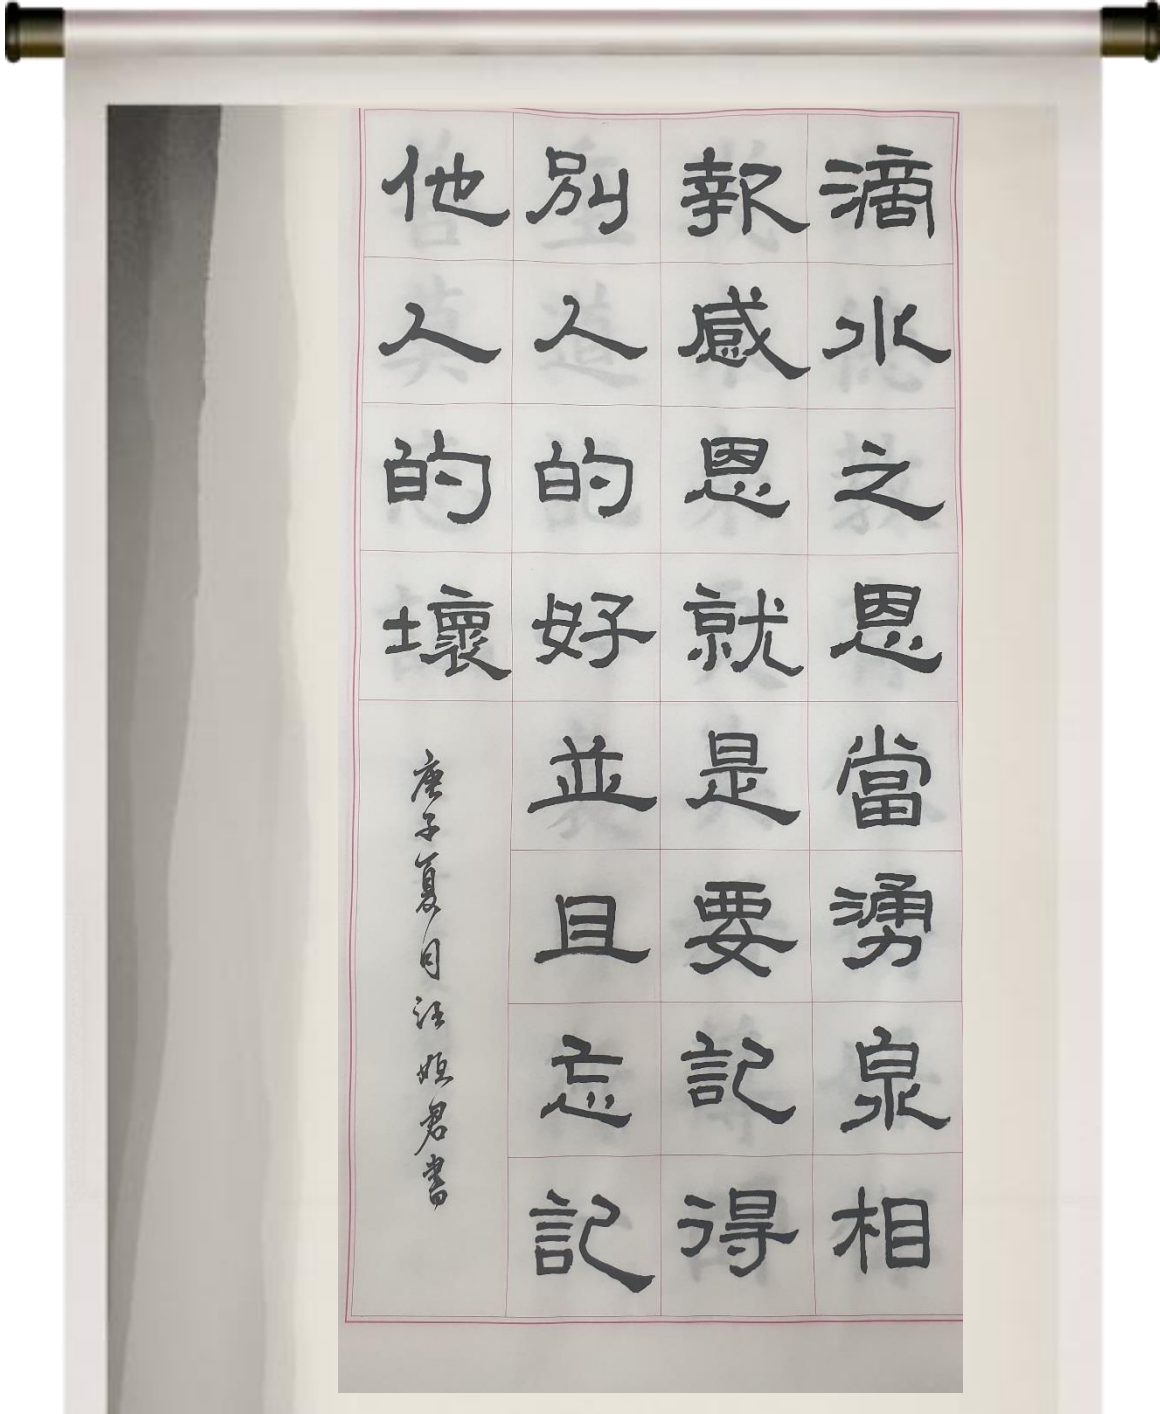 滴水之恩當湧泉相
報感恩就是要記得
別人的好並且忘記
他人的壞
庚子夏月汪姮君書